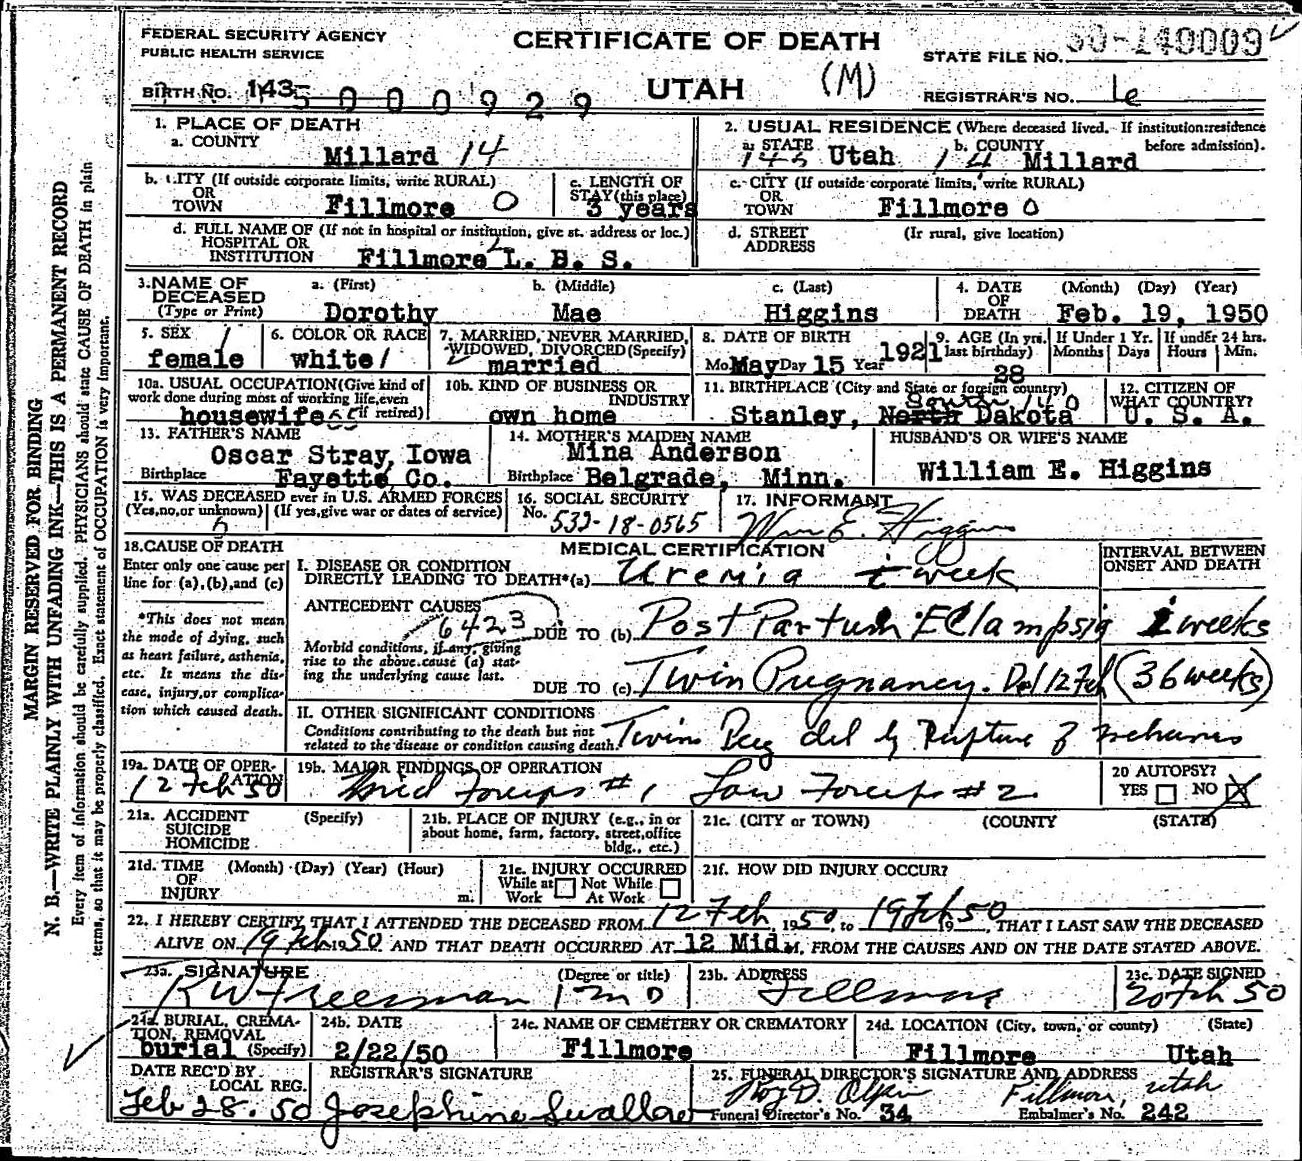 FEDERAL SECURITY AGENCY
PUBLIC HEALTH SERVICE
CERTIFICATE OF DEATH
STATE FILE NO. 50-140009
BIRTH NO. 1435 000929
UTAH (M)
REGISTRAR'S NO.
1. PLACE OF DEATH
a. COUNTY
Millard 14
2. USUAL RESIDENCE (Where deceased lived. If institution: residence before admission).
a. STATE Utah b. COUNTY 14 Millard
b. CITY (If outside corporate limits, write RURAL)
OR
TOWN Fillmore 0
c. LENGTH OF
STAY (this place)
3 years
c. CITY (If outside corporate limits, write RURAL)
OR
TOWN Fillmore 0
d. FULL NAME OF (If not in hospital or institution, give st. address or loc.)
HOSPITAL OR
INSTITUTION Fillmore L. D. S.
d. STREET
ADDRESS (If rural, give location)
3. NAME OF
DECEASED
(Type or Print)
a. (First) b. (Middle) c. (Last)
Dorothy Mae Higgins
4. DATE
OF
DEATH
(Month) (Day) (Year)
Feb. 19, 1950
5. SEX 1
female
6. COLOR OR RACE
white 1
7. MARRIED, NEVER MARRIED,
WIDOWED, DIVORCED (Specify)
married
8. DATE OF BIRTH
Mo. May Day 15 Year 1921
9. AGE (In yrs. last birthday)
28
If Under 1 Yr.
Months Days
If under 24 hrs.
Hours Min.
10a. USUAL OCCUPATION (Give kind of
work done during most of working life, even
if retired)
housewife
10b. KIND OF BUSINESS OR
INDUSTRY
own home
11. BIRTHPLACE (City and State or foreign country)
South 140
Stanley, North Dakota
12. CITIZEN OF
WHAT COUNTRY?
U. S. A.
13. FATHER'S NAME
Oscar Stray, Iowa
Birthplace Fayette, Co.
14. MOTHER'S MAIDEN NAME
Mina Anderson
Birthplace Belgrade, Minn.
HUSBAND'S OR WIFE'S NAME
William E. Higgins
15. WAS DECEASED ever in U.S. ARMED FORCES
(Yes, no, or unknown) (If yes, give war or dates of service)
16. SOCIAL SECURITY
No. 532-18-0565
17. INFORMANT
Wm E. Higgins
18. CAUSE OF DEATH
Enter only one cause per
line for (a), (b), and (c)
*This does not mean
the mode of dying, such
as heart failure, asthenia,
etc. It means the dis-
ease, injury, or complica-
tion which caused death.
MEDICAL CERTIFICATION
INTERVAL BETWEEN
ONSET AND DEATH
I. DISEASE OR CONDITION
DIRECTLY LEADING TO DEATH* (a) Uremia week
ANTECEDENT CAUSES
6423
DUE TO (b) Post Partum Eclampsia weeks
Morbid conditions, if any, giving
rise to the above cause (a) stat-
ing the underlying cause last.
DUE TO (c) Twin Pregnancy. Del 12 Feb (36 weeks)
II. OTHER SIGNIFICANT CONDITIONS
Conditions contributing to the death but not
related to the disease or condition causing death.
Twin Preg del by Rupture of
19a. DATE OF OPER-
ATION
12 Feb 50
19b. MAJOR FINDINGS OF OPERATION
Mid Forceps #1 Low Forceps #2
20 AUTOPSY?
YES NO X
21a. ACCIDENT
SUICIDE
HOMICIDE
(Specify)
21b. PLACE OF INJURY (e.g., in or
about home, farm, factory, street, office
bldg., etc.)
21c. (CITY or TOWN) (COUNTY) (STATE)
21d. TIME
OF
INJURY
(Month) (Day) (Year) (Hour)
m.
21e. INJURY OCCURRED
While at Work Not While At Work
21f. HOW DID INJURY OCCUR?
22. I HEREBY CERTIFY THAT I ATTENDED THE DECEASED FROM 12 Feb, 1950, to 19 Feb 50, 19, THAT I LAST SAW THE DECEASED
ALIVE ON 19 Feb 1950 AND THAT DEATH OCCURRED AT 12 Mid. M, FROM THE CAUSES AND ON THE DATE STATED ABOVE.
23a. SIGNATURE (Degree or title)
R W Freesman MD
23b. ADDRESS
Fillmore
23c. DATE SIGNED
20 Feb 50
24a. BURIAL, CREMA-
TION, REMOVAL
burial (Specify)
24b. DATE
2/22/50
24c. NAME OF CEMETERY OR CREMATORY
Fillmore
24d. LOCATION (City, town, or county) (State)
Fillmore Utah
DATE REC'D BY
LOCAL REG.
Feb 28. 50
REGISTRAR'S SIGNATURE
Josephine Swallow
25. FUNERAL DIRECTOR'S SIGNATURE AND ADDRESS
Fillmore, Utah
Funeral Director's No. 34 Embalmer's No. 242
MARGIN RESERVED FOR BINDING
N. B.—WRITE PLAINLY WITH UNFADING INK—THIS IS A PERMANENT RECORD
Every item of information should be carefully supplied. PHYSICIANS should state CAUSE OF DEATH in plain
terms, so that it may be properly classified. Exact statement of OCCUPATION is very important.